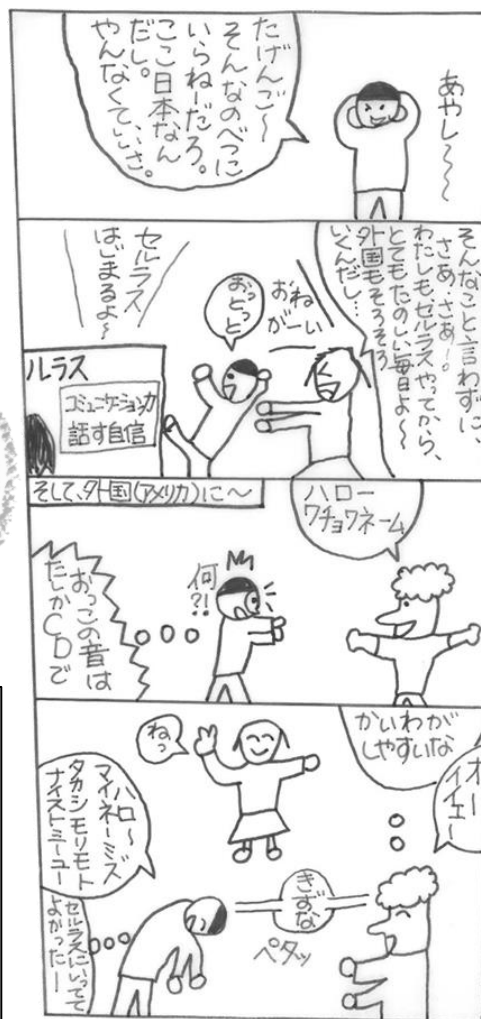 あやし～～～
たげんご～
そんなのべつに
いらねーだろ。
ここ日本なん
だし。
やんなくていいさ。
そんなこと言わずに、
さあ、さあ！。
わたしも、セルラスやってから、
とてもたのしい毎日よ～
外国もそろそろ
いくんだし…
おね
がーい
おっとっと
セルラス
はじまるよ～
ルラス
コミュニケーション力
話す自信
そして、外国(アメリカ)に～
ハロー
ワチョワネーム
何?!
おっこの音は
たしかCDで
かいわが
しやすいな
オー
イイエー
ねっ
ハロ～
マイネーミズ
タカシモリモト
ナイストミーユー
きずな
ペタッ
セルラスにいってて
よかったー